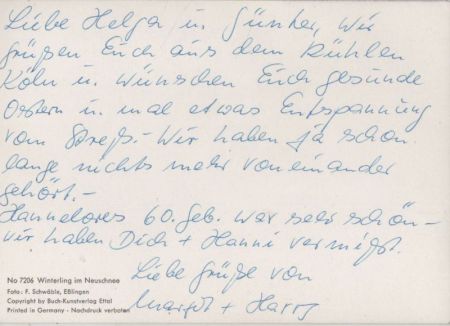 Liebe Helga u. Günter, wir
grüßen Euch aus dem kühlen
Köln u. wünschen Euch gesunde
Ostern u. mal etwas Entspannung
vom Streß.- Wir haben ja schon
lange nichts mehr voneinander
gehört.-
Hannelores 60. Geb. war sehr schön-
wir haben Dich + Hanni vermißt.
Liebe Grüße von
Margot + Harry
No 7206 Winterling im Neuschnee
Foto: F. Schwäble, Eßlingen
Copyright by Buch-Kunstverlag Ettal
Printed in Germany - Nachdruck verboten